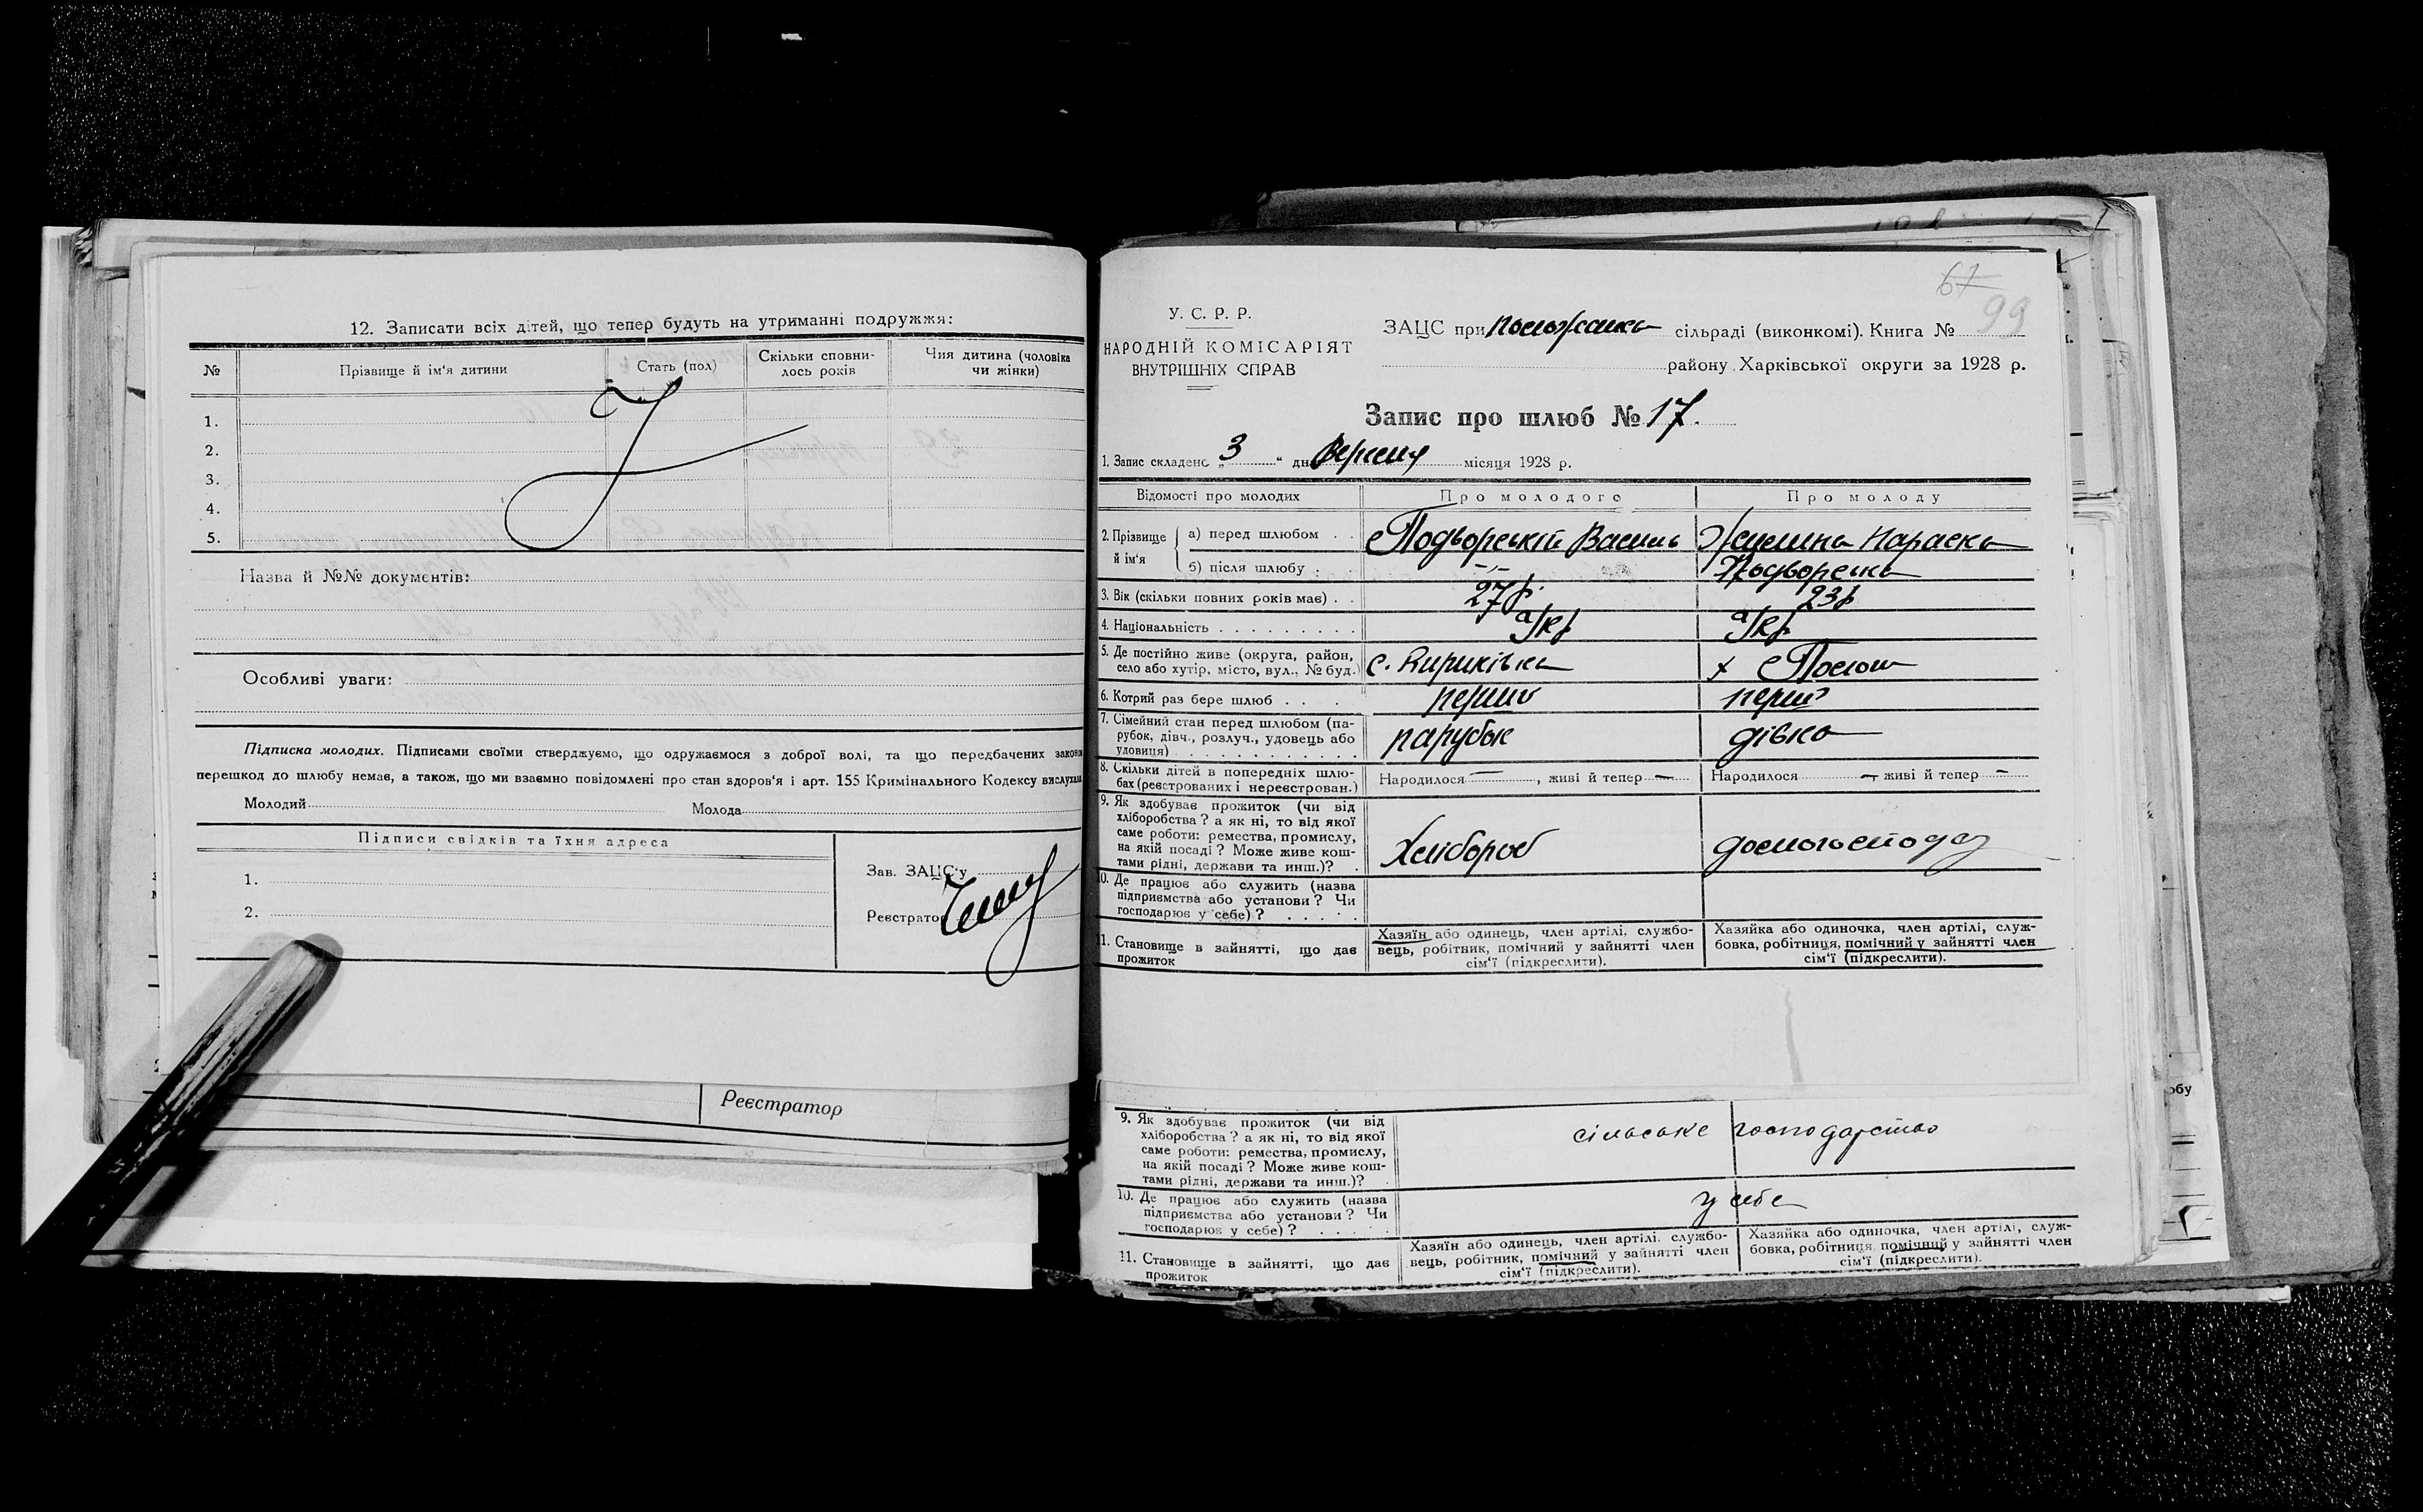 12. Записати всіх дітей, що тепер будуть на утриманні подружжя:
№ Прізвище й ім'я дитини Стать (пол) Скільки сповни- Чия дитина (чоловіка
лось років чи жінки)
1.
2.
3.
4.
5.
Назва й №№ документів:
Особливі уваги:
Підписка молодих. Підписами своїми стверджуємо, що одружаємося з доброї волі, та що передбачених закон
перешкод до шлюбу немає, а також, що ми взаємно повідомлені про стан здоров'я і арт. 155 Кримінального Кодексу вислухал
Молодий Молода
Підписи свідків та їхня адреса
1.
2.
Зав. ЗАЦС'у
Реєстратор
Реєстратор
67
99
У. С. Р. Р.
НАРОДНІЙ КОМІСАРІЯТ
ВНУТРІШНІХ СПРАВ
ЗАЦС при сільраді (виконкомі). Книга №
району Харківської округи за 1928 р.
Запис про шлюб № 17.
1. Запис складено „3“ дн Вересня місяця 1928 р.
Відомості про молодих Про молодого Про молоду
2. Прізвище й ім'я а) перед шлюбом Подворській Василь Параска
б) після шлюбу -„- Подворська
3. Вік (скільки повних років має) 27 р. 23 р
4. Національність Укр Укр
5. Де постійно живе (округа, район,
село або хутір, місто, вул., № буд.) с. Кириківка х
6. Котрий раз бере шлюб перший перш
7. Сімейний стан перед шлюбом (па-
рубок, дівч., розлуч., удовець або
удовиця) парубок дівка
8. Скільки дітей в попередніх шлю-
бах (реєстрованих і нереєстрован.) Народилося — , живі й тепер — Народилося — живі й тепер —
9. Як здобуває прожиток (чи від
хліборобства? а як ні, то від якої
саме роботи: ремества, промислу,
на якій посаді? Може живе кош-
тами рідні, держави та инш.)? Хлібороб
10. Де працює або служить (назва
підприємства або установи? Чи
господарює у себе)?
11. Становище в зайнятті, що дає
прожиток
Хазяїн або одинець, член артілі, службо-
вець, робітник, помічний у зайнятті член
сім'ї (підкреслити).
Хазяйка або одиночка, член артілі, служ-
бовка, робітниця, помічний у зайнятті член
сім'ї (підкреслити).
9. Як здобуває прожиток (чи від
хліборобства? а як ні, то від якої
саме роботи: ремества, промислу,
на якій посаді? Може живе кош-
тами рідні, держави та инш.)? сільське господарство
10. Де працює або служить (назва
підприємства або установи? Чи
господарює у себе)? у себе
11. Становище в зайнятті, що дає
прожиток
Хазяїн або одинець, член артілі, службо-
вець, робітник, помічний у зайнятті член
сім'ї (підкреслити).
Хазяйка або одиночка, член артілі, служ-
бовка, робітниця, помічний у зайнятті член
сім'ї (підкреслити).
обу